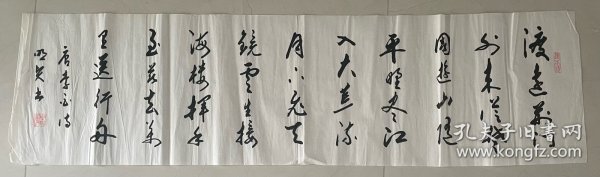 渡远荆门
外来從楚
國遊山随
平野尽江
入大荒流
月下飞天
鏡雲生接
海楼揮手
自兹去万
里送行舟
唐李白诗
书
孔夫子旧书网
www.kongfz.com